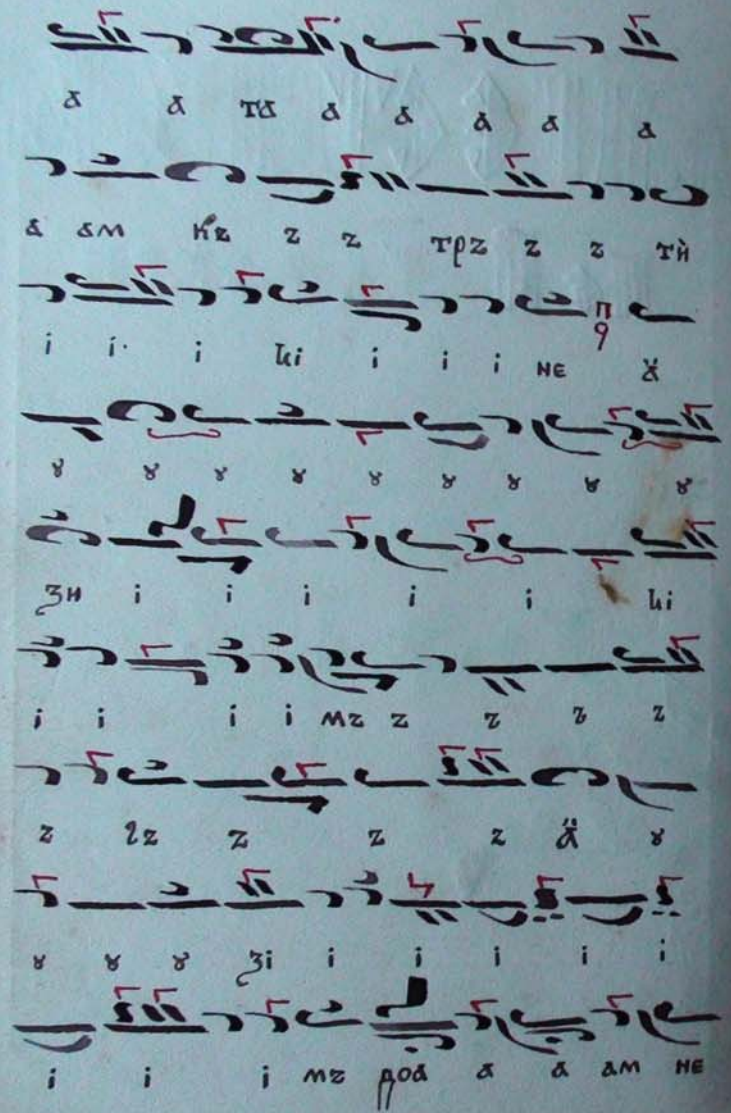 а а та а а а а а
а ам къ ъ ъ тръ ъ ъ тѝ
і і і ћі і і і не ӑ
ꙋ ꙋ ꙋ ꙋ ꙋ ꙋ ꙋ ꙋ ꙋ
зн і і і і і ћі
і і і і мъ ъ ъ ъ ъ
ъ гъ ъ ъ ъ ӑ ꙋ
ꙋ ꙋ ꙋ зі і і і і і
і і і мъ доа а а ам не